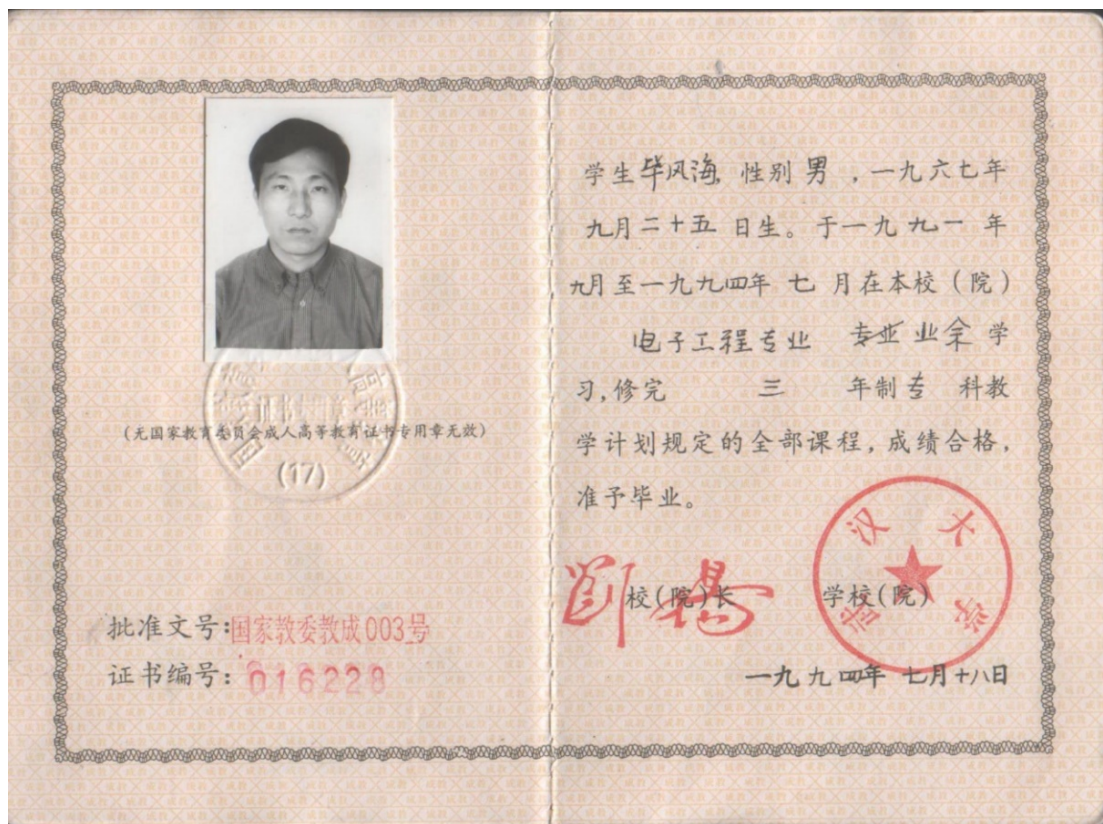 (无国家教育委员会成人高等教育证书专用章无效)
(17)
批准文号:国家教委教成003号
证书编号:016228
学生毕风海,性别男,一九六七年
九月二十五日生。于一九九一年
九月至一九九四年七月在本校(院)
电子工程专业 专业业余学
习,修完 三 年制专 科教
学计划规定的全部课程,成绩合格,
准予毕业。
校(院)长 学校(院)
武汉大学
一九九四年七月十八日